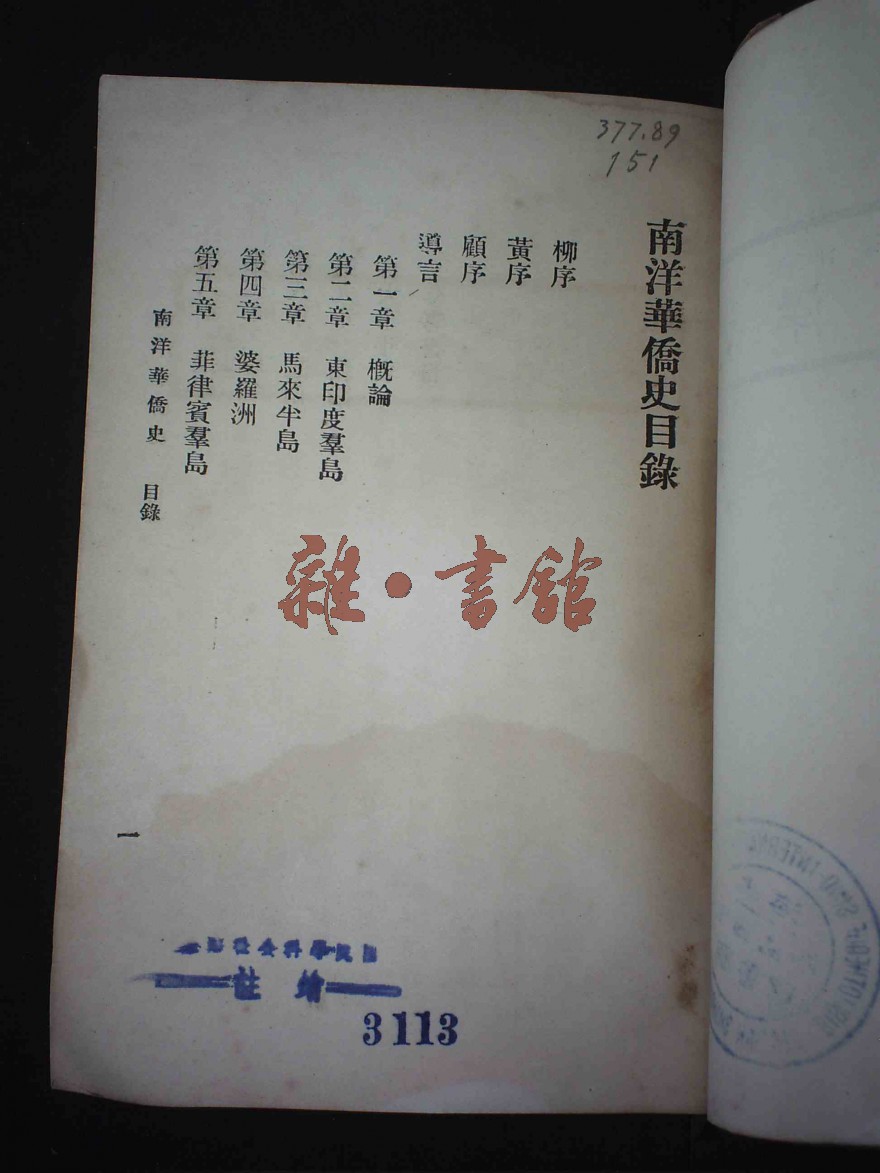 377.89
151
南洋華僑史目錄
柳序
黃序
顧序
導言
第一章 概論
第二章 東印度羣島
第三章 馬來半島
第四章 婆羅洲
第五章 菲律賓羣島
南洋華僑史 目錄
一
雜·書館
3113